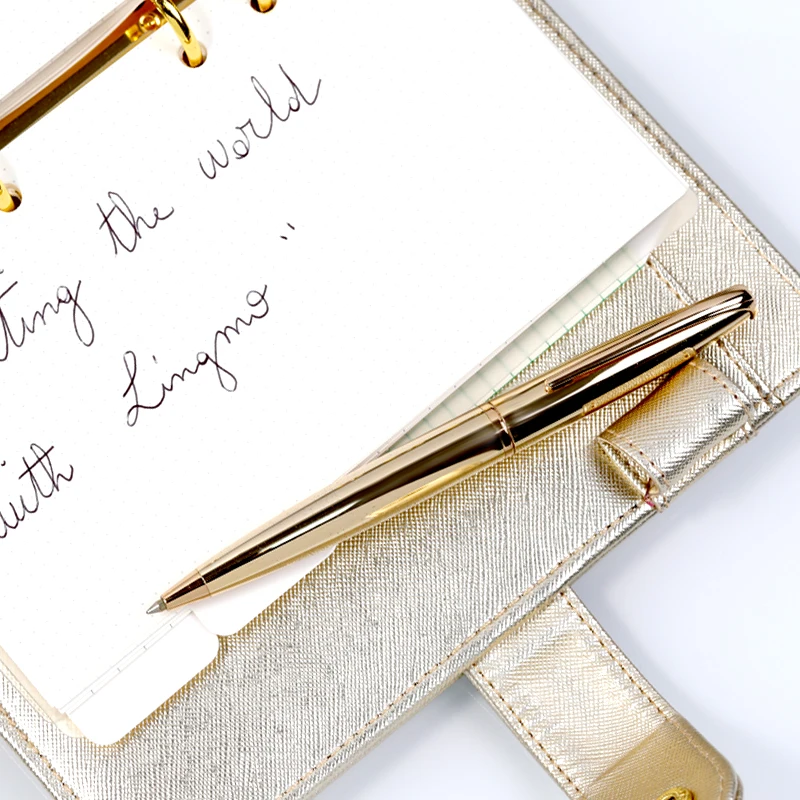 ting the world
with Lingmo "